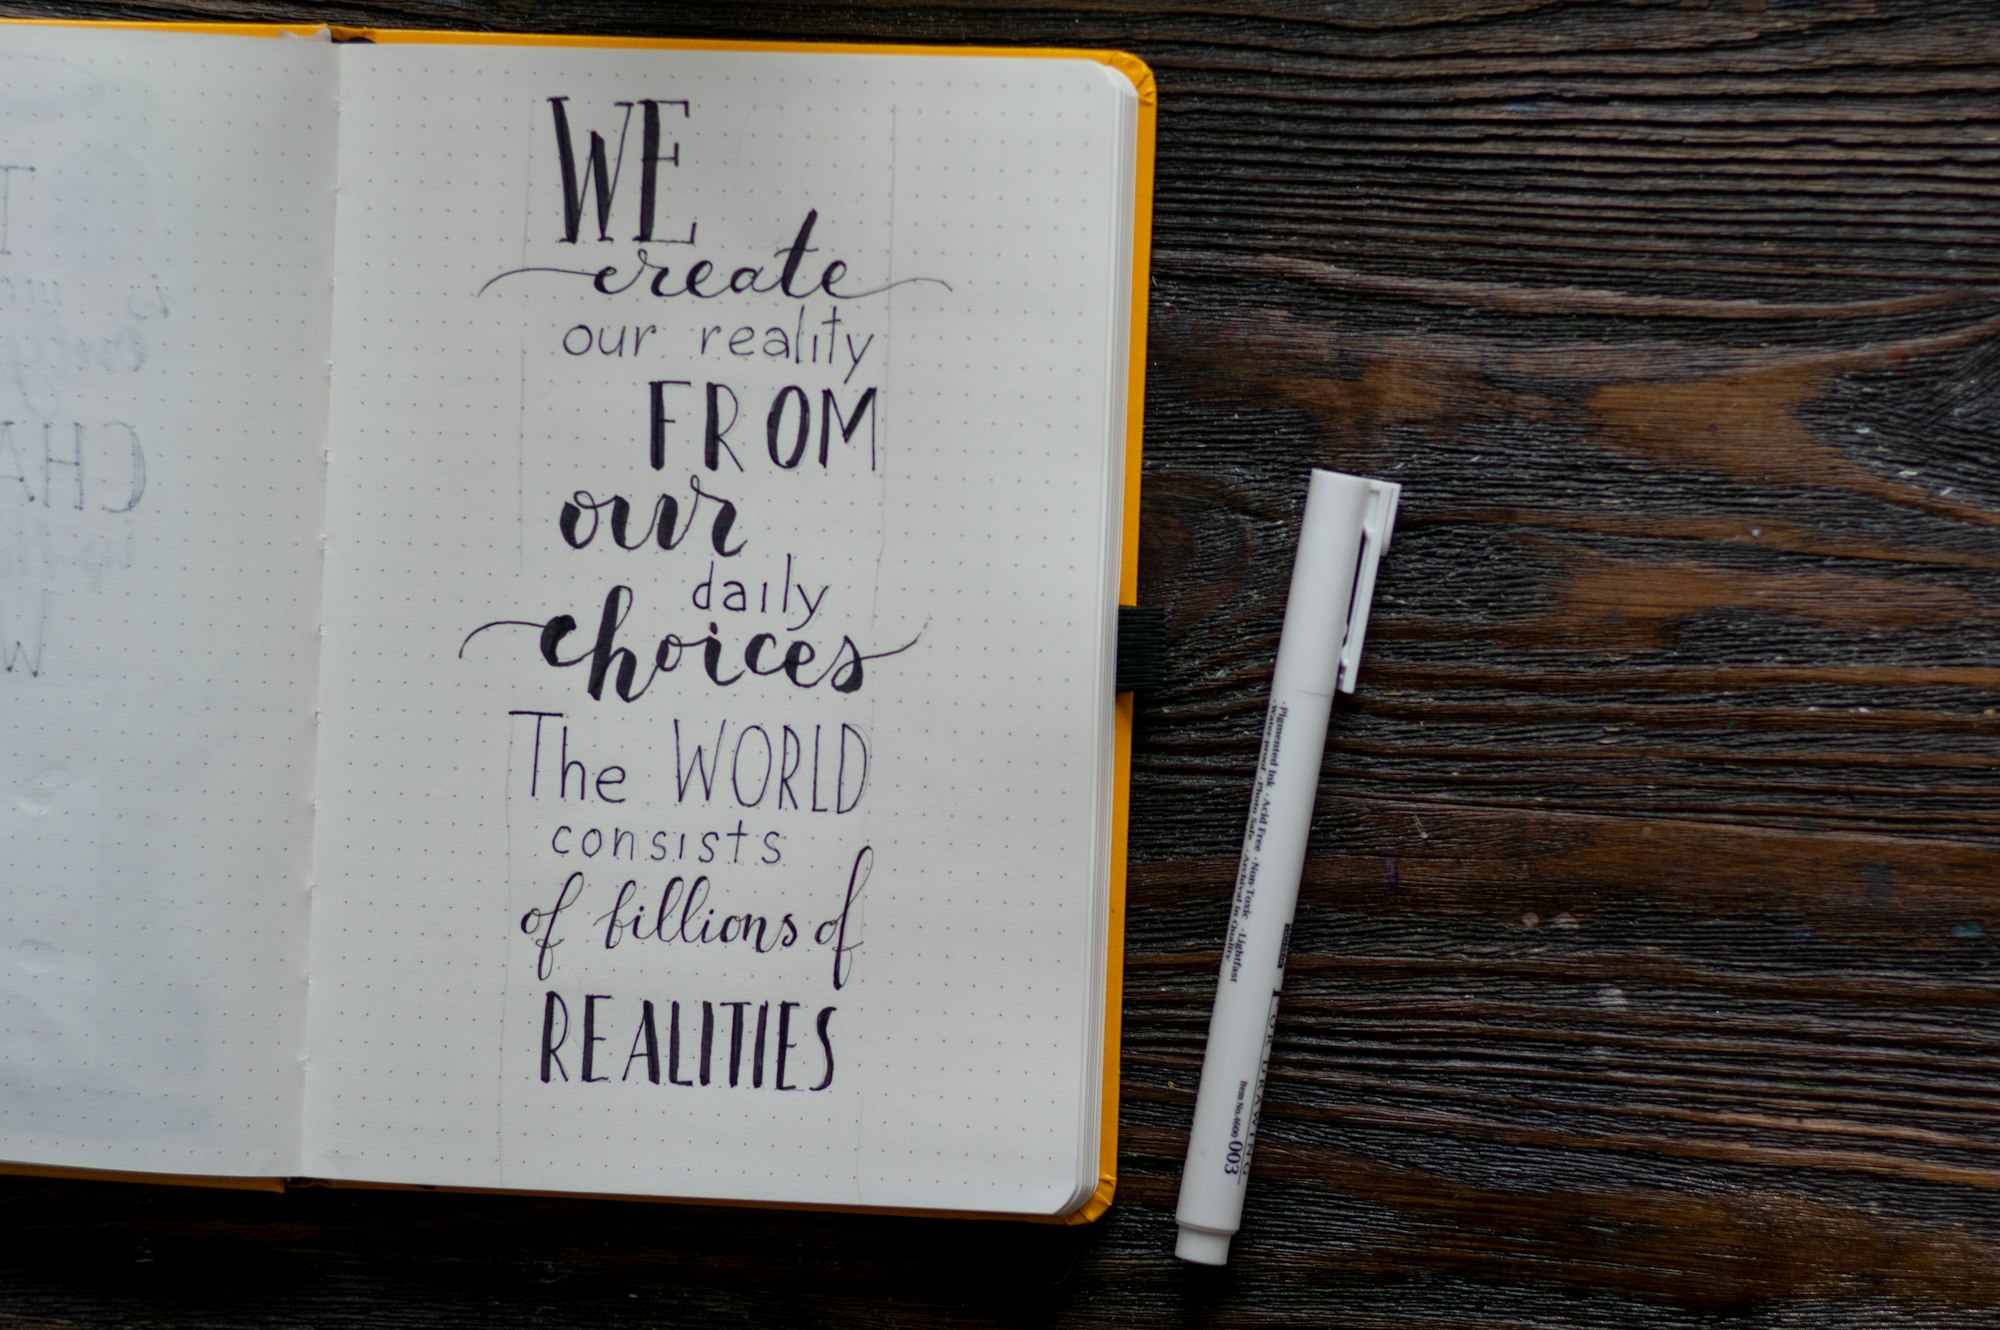 WE
create
our reality
FROM
our
daily
choices
The WORLD
consists
of billions of
REALITIES
· Pigmented Ink · Acid Free · Non-Toxic · Lightfast
· Water proof · Photo Safe · Archival in Quality
FOR DRAWING
Item No.4600 003